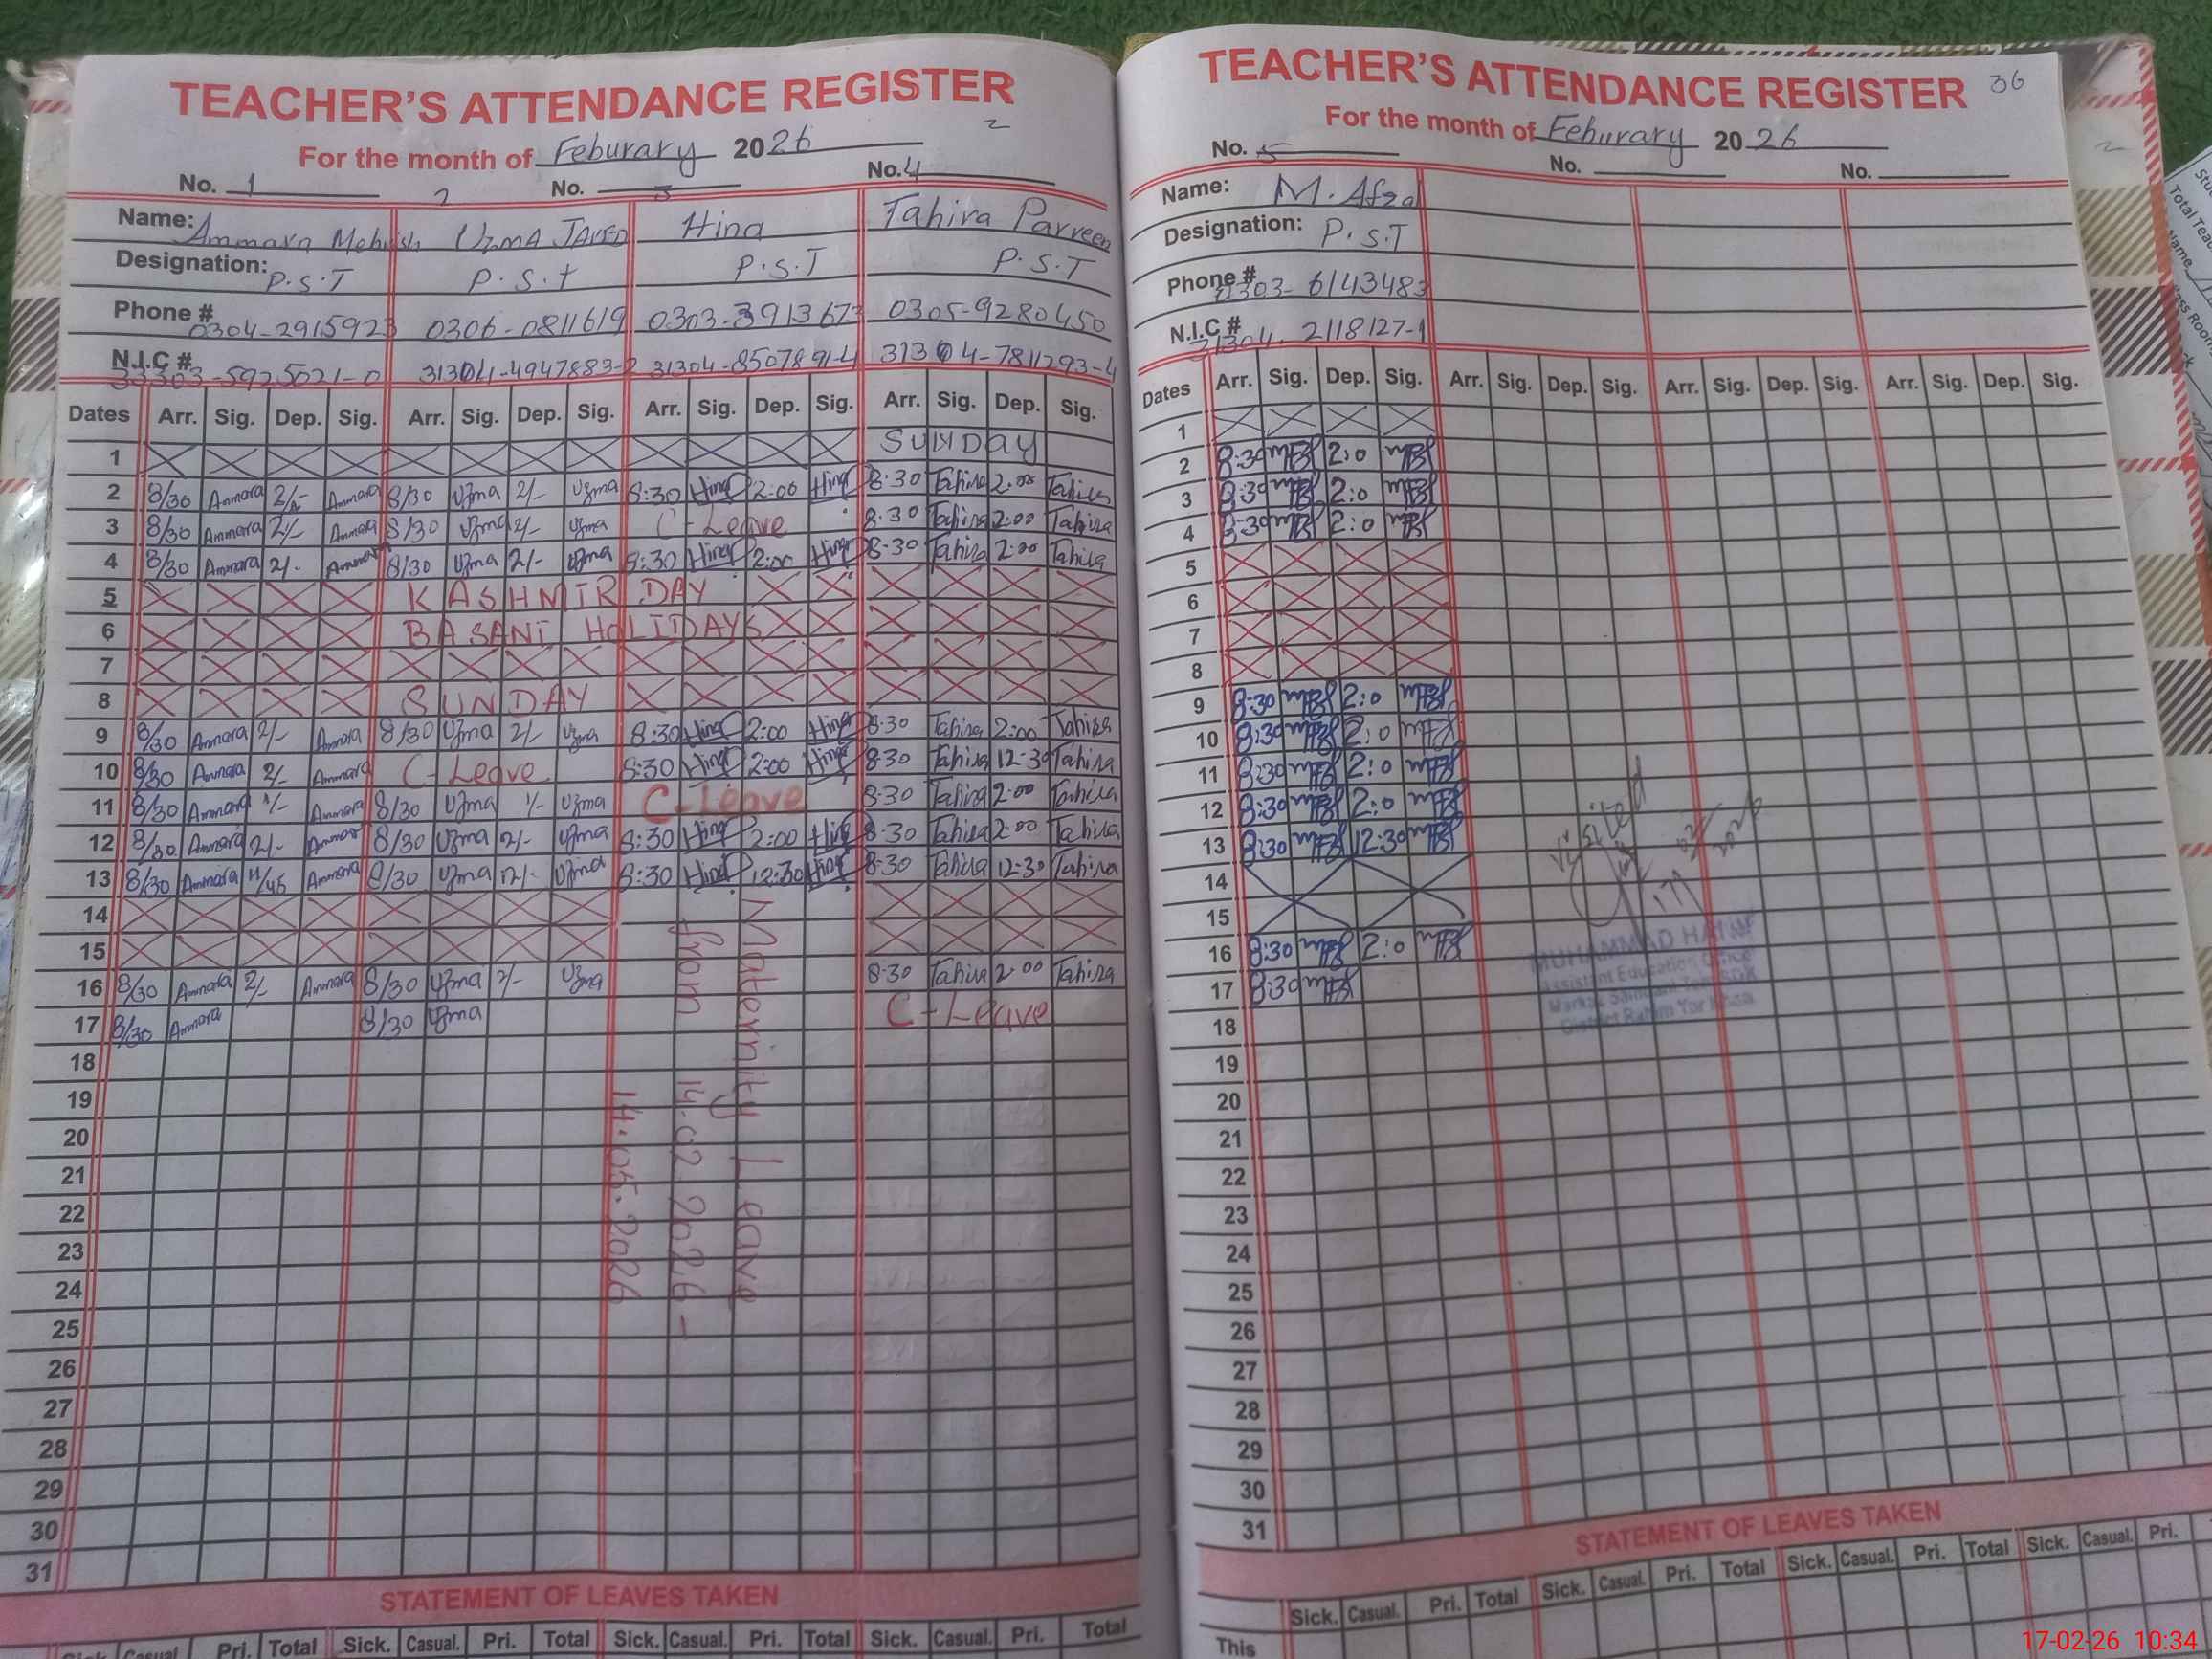 TEACHER'S ATTENDANCE REGISTER
For the month of Feburary 2026
No. 1 2 No. 3 No. 4
Name: Ammara Mehwish UzmA JAVED Hina Tahira Parveen
Designation: P.S.T P.S.t P.S.T P.S.T
Phone # 0304-2915923 0306-0811619 0303-3913673 0305-9280450
N.I.C # 31304-8507891-4 31304-7811293-4
Dates Arr. Sig. Dep. Sig. Arr. Sig. Dep. Sig. Arr. Sig. Dep. Sig. Arr. Sig. Dep. Sig.
1 SUNDAY
2 8/30 Ammara 2/- Ammara 8/30 Uzma 2/- Uzma 8:30 Hina 2:00 Hina 8:30 Tahira 2:00 Tahira
3 8/30 Ammara 2/- Ammara 8/30 Uzma 2/- Uzma C-Leave 8:30 Tahira 2:00 Tahira
4 8/30 Ammara 2/- Ammara 8/30 Uzma 2/- Uzma 8:30 Hina 2:00 Hina 8-30 Tahira 2:00 Tahira
5 KASHMIR DAY
6 BASANT HOLIDAYS
7
8 SUNDAY
9 8/30 Ammara 2/- Ammara 8/30 Uzma 2/- Uzma 8:30 Hina 2:00 Hina 8:30 Tahira 2:00 Tahira
10 8/30 Ammara 2/- Ammara C-Leave 8:30 Hina 2:00 Hina 8:30 Tahira 12-30 Tahira
11 8/30 Ammara 1/- Ammara 8/30 Uzma 1/- Uzma C-Leave 8:30 Tahira 2:00 Tahira
12 8/30 Ammara 2/- Ammara 8/30 Uzma 2/- Uzma 8:30 Hina 2:00 Hina 8-30 Tahira 2:00 Tahira
13 8/30 Ammara 11/45 Ammara 8/30 Uzma 12/- Uzma 8:30 Hina 12:30 Hina 8-30 Tahira 12-30 Tahira
14
15
16 8/30 Ammara 2/- Ammara 8/30 Uzma 2/- Uzma 8-30 Tahira 2:00 Tahira
17 8/30 Ammara 8/30 Uzma C-Leave
Maternity Leave
from 14.02.2026 -
14.05.2026
18
19
20
21
22
23
24
25
26
27
28
29
30
31
STATEMENT OF LEAVES TAKEN
Sick. Casual. Pri. Total Sick. Casual. Pri. Total Sick. Casual. Pri. Total Sick. Casual. Pri. Total
TEACHER'S ATTENDANCE REGISTER 36
For the month of Feburary 2026
No. 5 No. No.
Name: M. Afzal
Designation: P.S.T
Phone # 0303-6143483
N.I.C # 31304-2118127-1
Dates Arr. Sig. Dep. Sig. Arr. Sig. Dep. Sig. Arr. Sig. Dep. Sig. Arr. Sig. Dep. Sig.
1
2 8:30 2:0
3 8:30 2:0
4 8:30 2:0
5
6
7
8
9 8:30 2:0
10 8:30 2:0
11 8:30 2:0
12 8:30 2:0
13 8:30 12:30
14
15
16 8:30 2:0
17 8:30
18
19
20
21
22
23
24
25
26
27
28
29
30
31
Visited
Assistant Education Officer
District Rahim Yar Khan
STATEMENT OF LEAVES TAKEN
Sick. Casual. Pri. Total Sick. Casual. Pri. Total Sick. Casual. Pri. Total Sick. Casual. Pri.
This
17-02-26 10:34